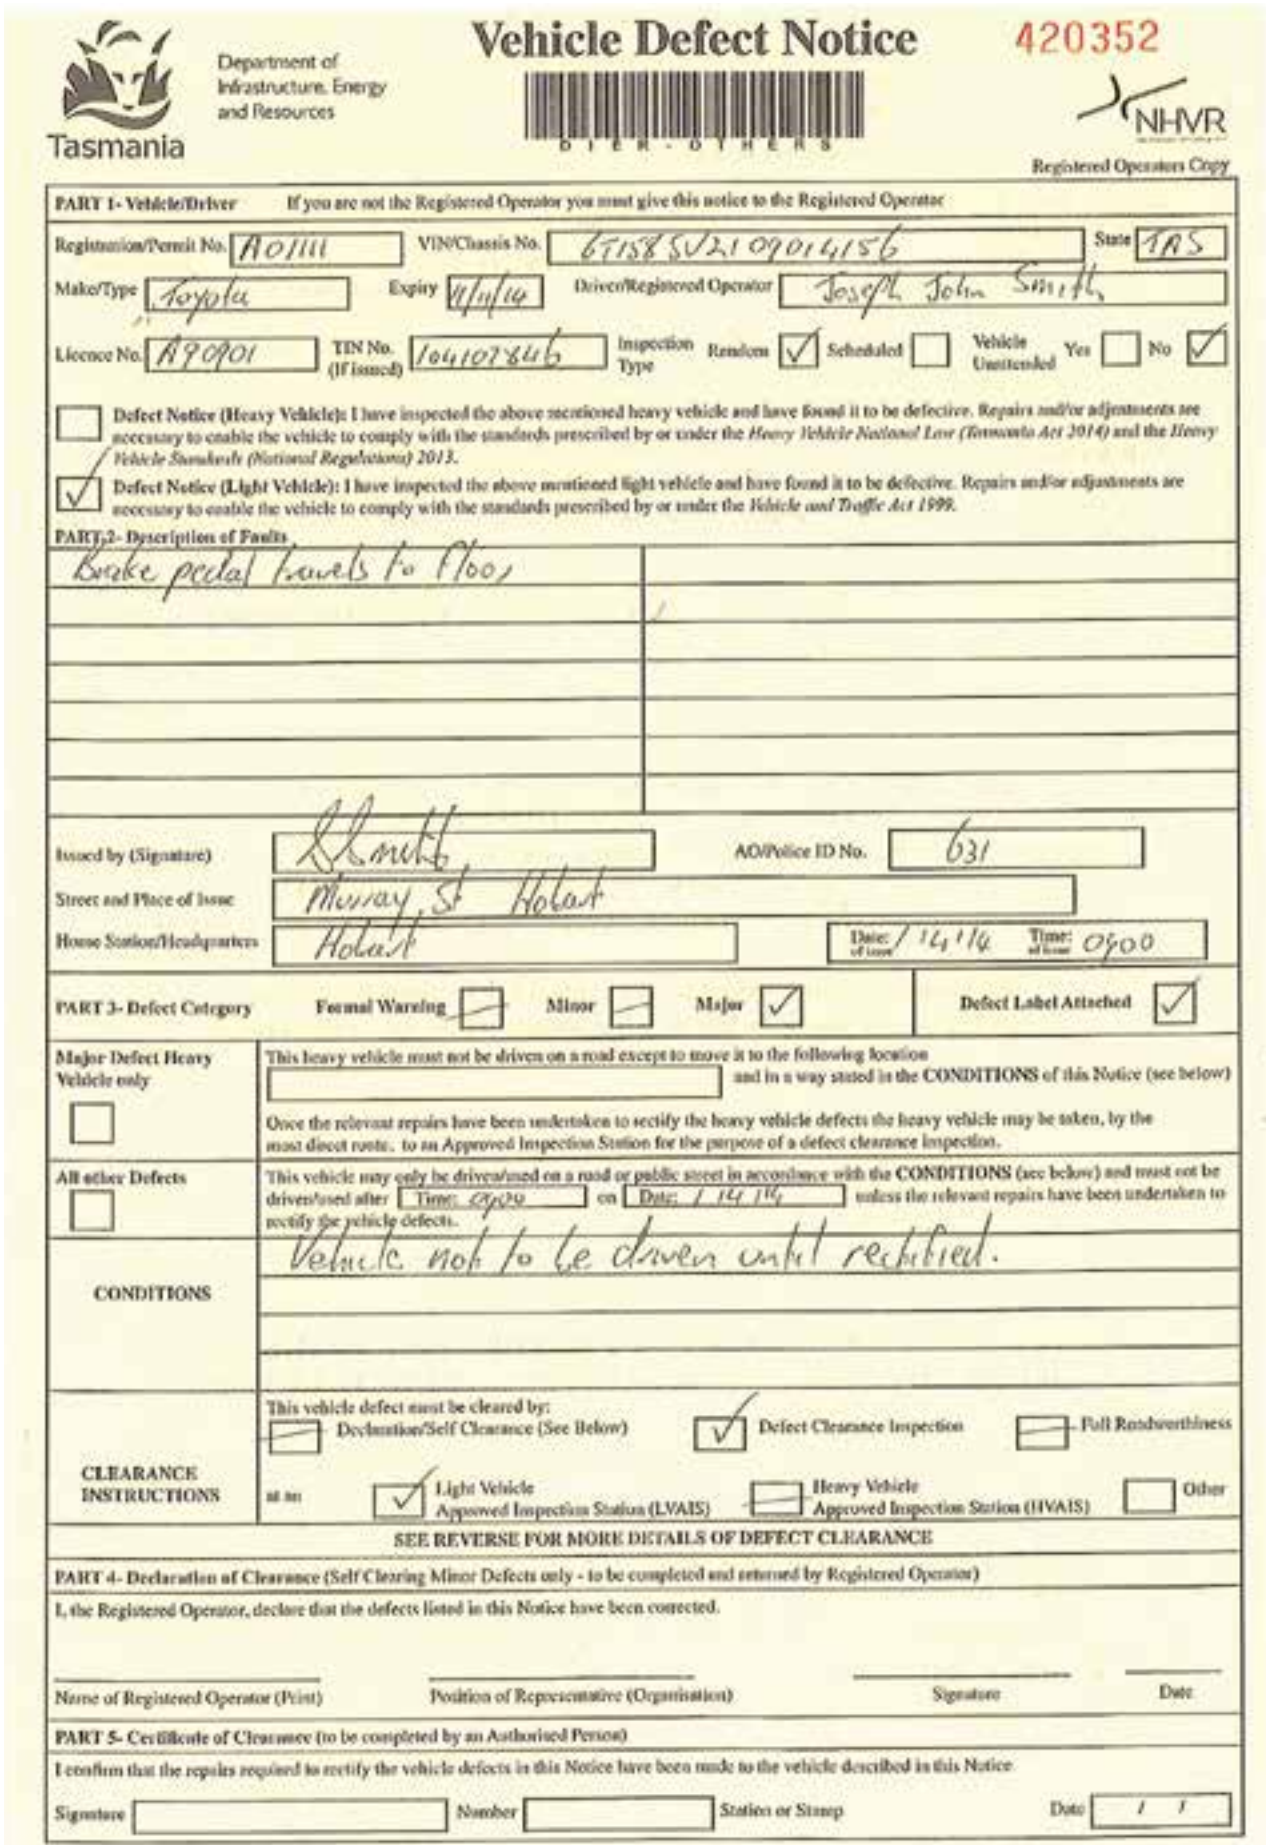 Vehicle Defect Notice
420352
Department of
Infrastructure, Energy
and Resources
Tasmania
DIER-OTHERS
NHVR
Registered Operators Copy
PART 1- Vehicle/Driver If you are not the Registered Operator you must give this notice to the Registered Operator
Registration/Permit No. A01111 VIN/Chassis No. 6T1585V2109014156 State TAS
Make/Type Toyota Expiry 11/11/14 Driver/Registered Operator Joseph John Smith
Licence No. A90901 TIN No. (If issued) 104107846 Inspection Type Random Scheduled Vehicle Unattended Yes No
Defect Notice (Heavy Vehicle): I have inspected the above mentioned heavy vehicle and have found it to be defective. Repairs and/or adjustments are
necessary to enable the vehicle to comply with the standards prescribed by or under the Heavy Vehicle National Law (Tasmania Act 2014) and the Heavy
Vehicle Standards (National Regulations) 2013.
Defect Notice (Light Vehicle): I have inspected the above mentioned light vehicle and have found it to be defective. Repairs and/or adjustments are
necessary to enable the vehicle to comply with the standards prescribed by or under the Vehicle and Traffic Act 1999.
PART 2- Description of Faults
Brake pedal travels to floor
Issued by (Signature) AO/Police ID No. 631
Street and Place of Issue Murray St Hobart
Home Station/Headquarters Hobart Date: of issue 1/4/14 Time: of issue 0900
PART 3- Defect Category Formal Warning Minor Major Defect Label Attached
Major Defect Heavy Vehicle only
This heavy vehicle must not be driven on a road except to move it to the following location
and in a way stated in the CONDITIONS of this Notice (see below)
Once the relevant repairs have been undertaken to rectify the heavy vehicle defects the heavy vehicle may be taken, by the
most direct route, to an Approved Inspection Station for the purpose of a defect clearance inspection.
All other Defects
This vehicle may only be driven/used on a road or public street in accordance with the CONDITIONS (see below) and must not be
driven/used after Time: 0900 on Date: 1/4/14 unless the relevant repairs have been undertaken to
rectify the vehicle defects.
CONDITIONS
Vehicle not to be driven until rectified.
CLEARANCE INSTRUCTIONS
This vehicle defect must be cleared by:
Declaration/Self Clearance (See Below) Defect Clearance Inspection Full Roadworthiness
Light Vehicle Approved Inspection Station (LVAIS) Heavy Vehicle Approved Inspection Station (HVAIS) Other
SEE REVERSE FOR MORE DETAILS OF DEFECT CLEARANCE
PART 4- Declaration of Clearance (Self Clearing Minor Defects only - to be completed and returned by Registered Operator)
I, the Registered Operator, declare that the defects listed in this Notice have been corrected.
Name of Registered Operator (Print) Position of Representative (Organisation) Signature Date
PART 5- Certificate of Clearance (to be completed by an Authorised Person)
I confirm that the repairs required to rectify the vehicle defects in this Notice have been made to the vehicle described in this Notice
Signature Number Station or Stamp Date / /